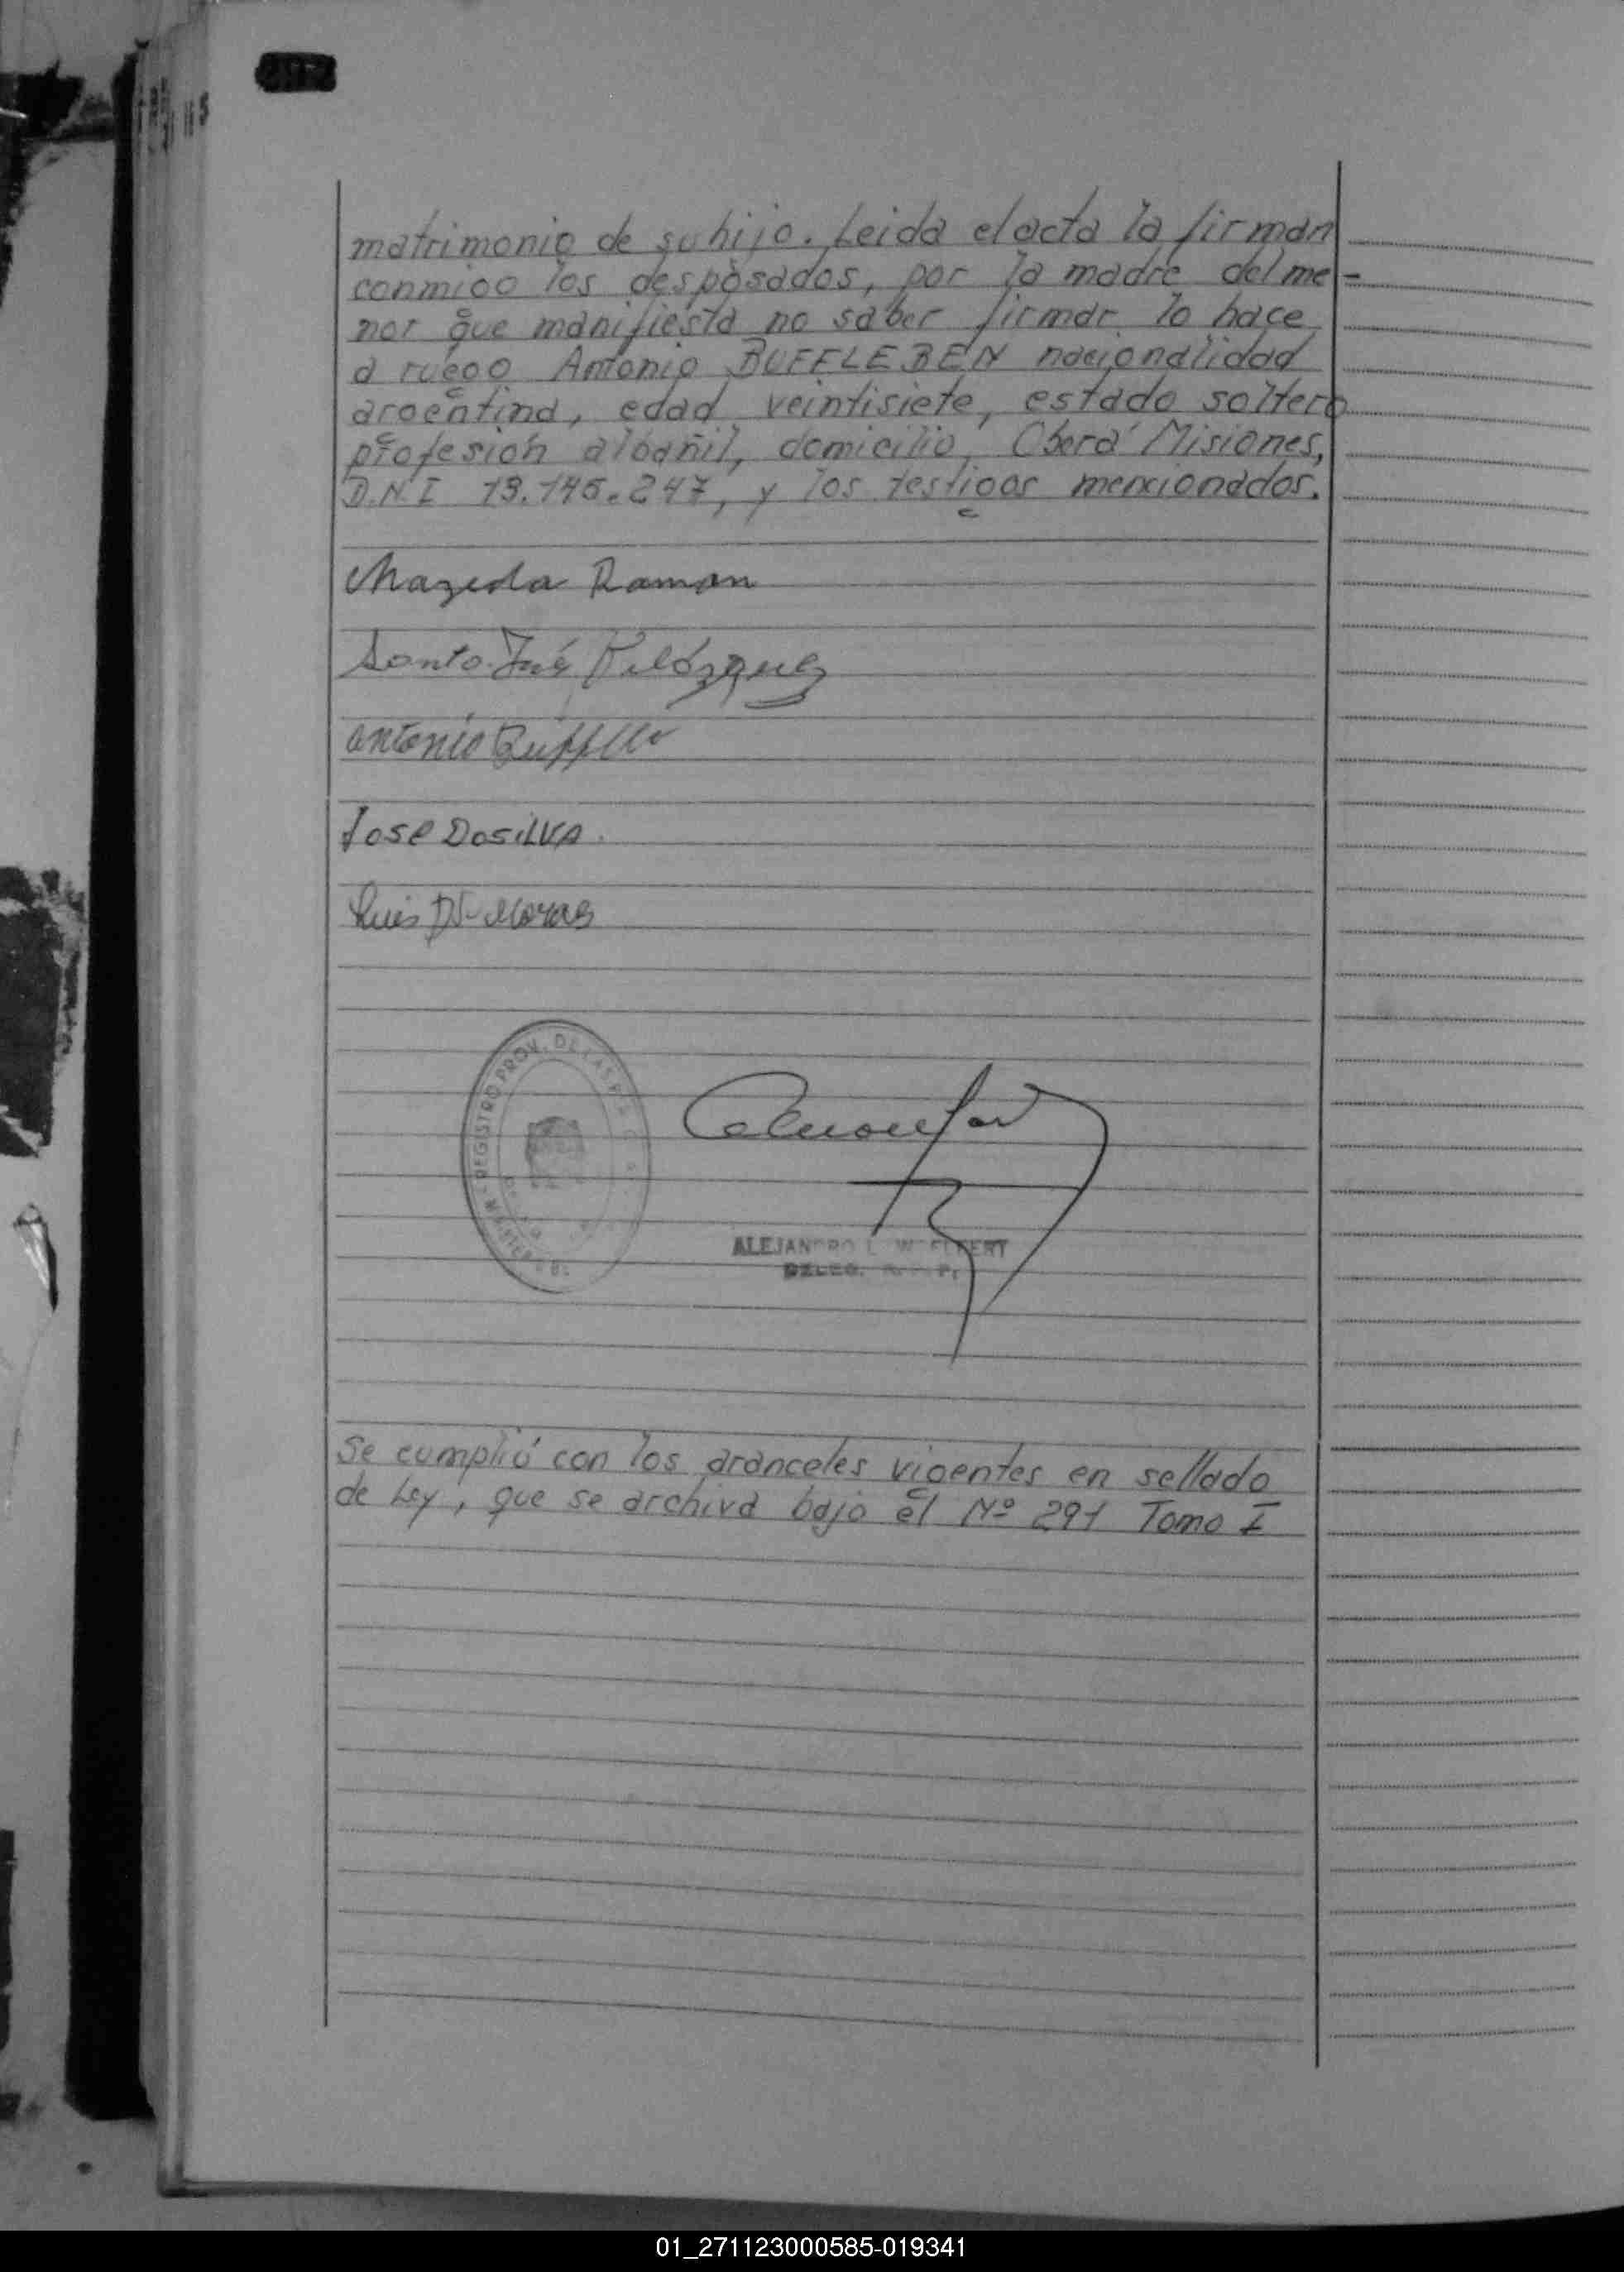 matrimonio de su hijo. Leida el acta la firman
conmigo los desposados, por la madre del me-
nor que manifiesta no saber firmar lo hace
a ruego Antonio BUFFLEBEN nacionalidad
argentina, edad veintisiete, estado soltero
profesión albañil, domicilio, Oberá Misiones,
D.N.I 13.145.247, y los testigos mencionados.
Ramon
Santo José Velázquez
Antonio
Jose DosiLVA.
Luis
REGISTRO PROV. DE LAS
ALEJANDRO L.
DELEG.
Se cumplió con los aranceles vigentes en sellado
de Ley, que se archiva bajo el Nº 291 Tomo I
01_271123000585-019341